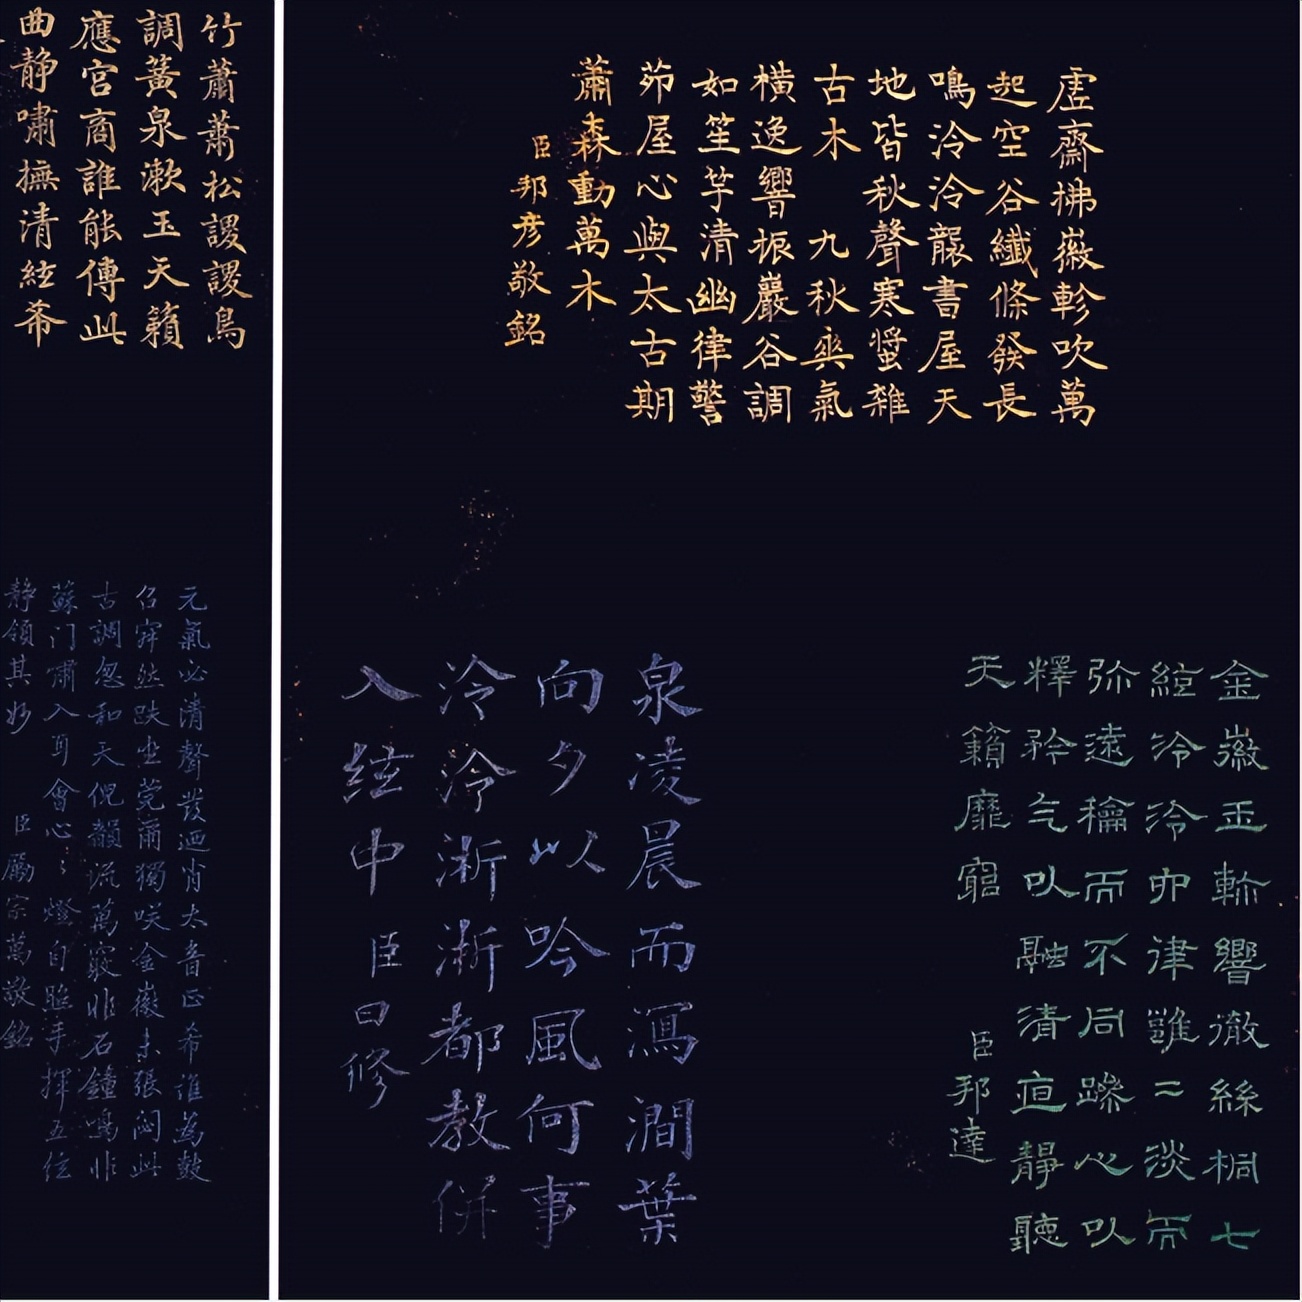 虛齋拂徽軫吹萬
起空谷纖條發長
鳴泠泠襲書屋天
地皆秋聲寒螿雜
古木 九秋爽氣
橫逸響振巖谷調
如笙竽清幽律警
茆屋心與太古期
蕭森動萬木
臣邦彥敬銘
金徽玉軫響徹絲桐七
絃泠泠律雝二淡而
弥遠龢而不同躁心以
釋矜气以融清亱靜聽
天籟靡窮
臣邦達
泉凌晨而瀉澗葉
向夕以吟風何事
泠泠淅淅都教併
入絃中 臣曰修
竹蕭蕭松謖謖鳥
調簧泉漱玉天籟
應宮商誰能傳此
曲靜嘯撫清絃希
元氣必清聲發迺肖太音正希誰為鼓
召然趺坐莞爾獨咲金徽未張此
古調忽和天倪韻流萬竅非石鐘鳴非
蘇门嘯入耳會心〻燈自照手揮五絃
靜領其妙 臣勵宗萬敬銘